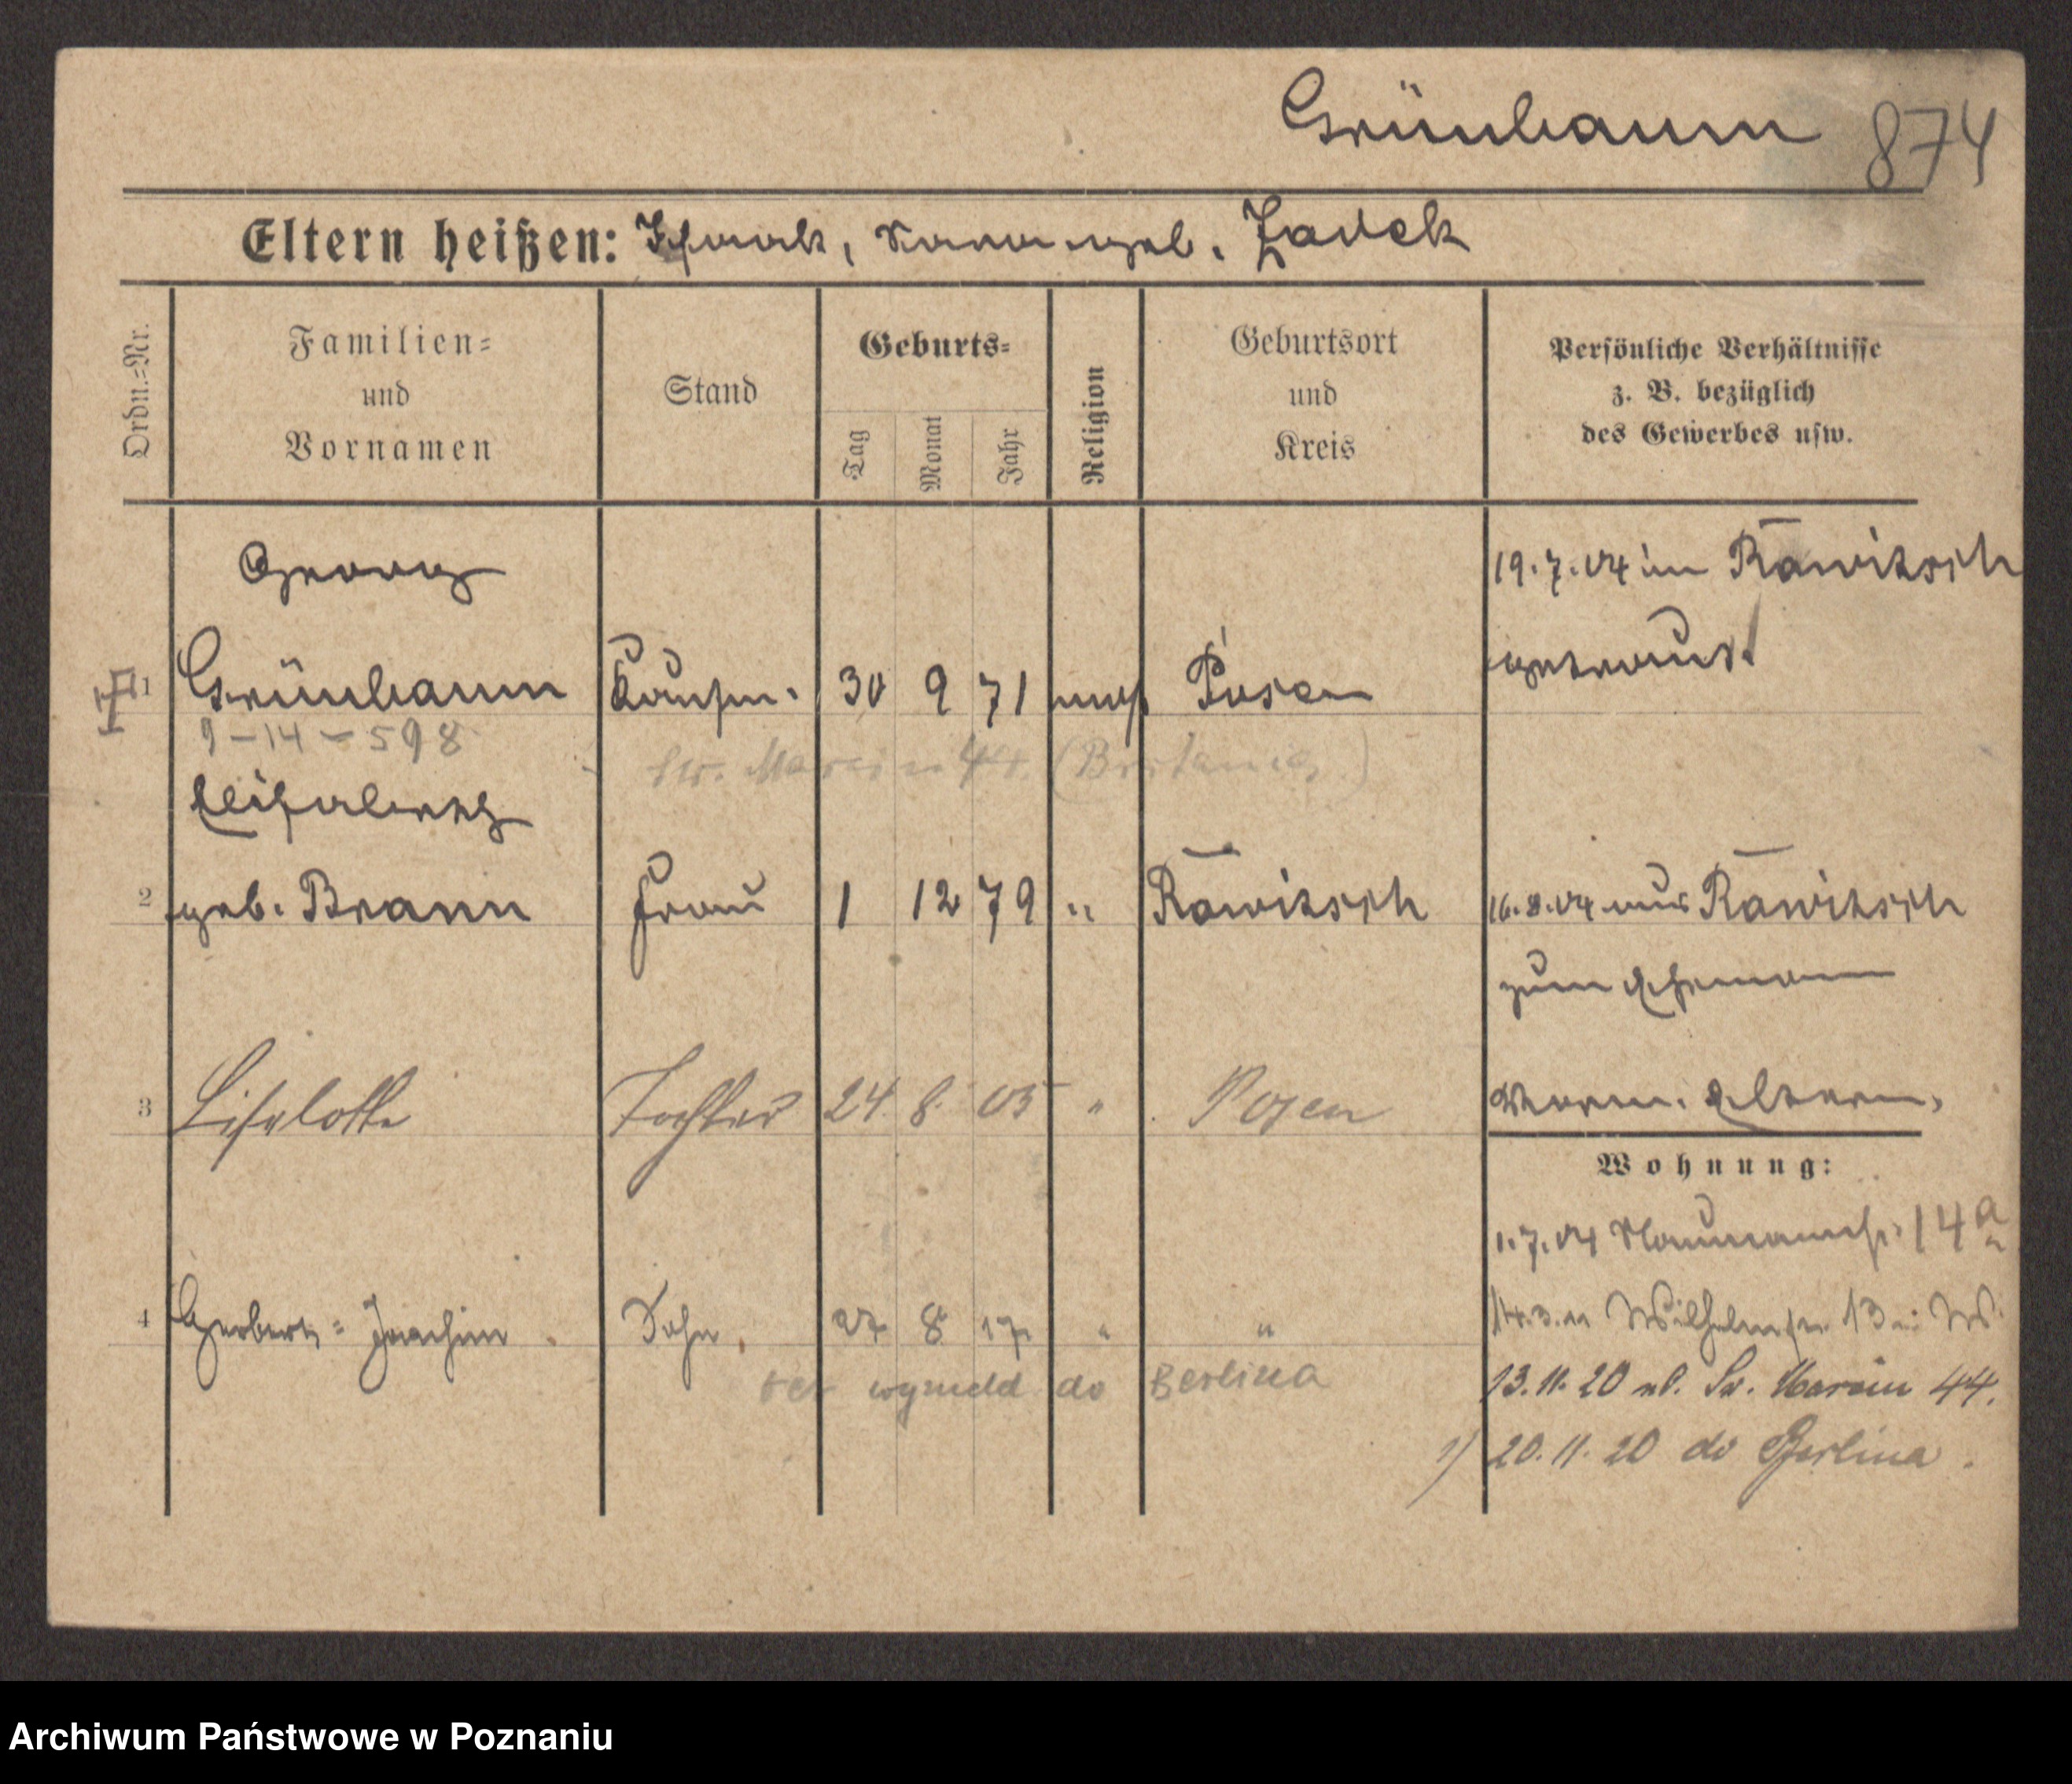 Grünbaum 874
Eltern heißen: Isaak, Sara geb. Zadek
Ordn.=Nr.
Familien=
und
Vornamen
Stand
Geburts=
Tag
Monat
Jahr
Religion
Geburtsort
und
Kreis
Persönliche Verhältnisse
z. B. bezüglich
des Gewerbes usw.
Georg
19.7.04 in Rawitsch
1 Grünbaum Kaufm. 30 9 71 mos Posen
getraut
9-14-598
Św. Marcin 44. (Britania)
Elisabeth
2 geb. Brann Frau 1 12 79 " Rawitsch
16.8.04 aus Rawitsch
zum Ehemann
3 Liselotte Tochter 24 8. 05 " Posen
Eltern.
Wohnung:
1.7.04 Naumannstr. 14a
4 Herbert=Joachim Sohn 27 8 17 " "
Wilhelmstr. 13
wymeld do Berlina
13.11.20 ul. Św. Marcin 44.
20.11.20 do Berlina.
Archiwum Państwowe w Poznaniu